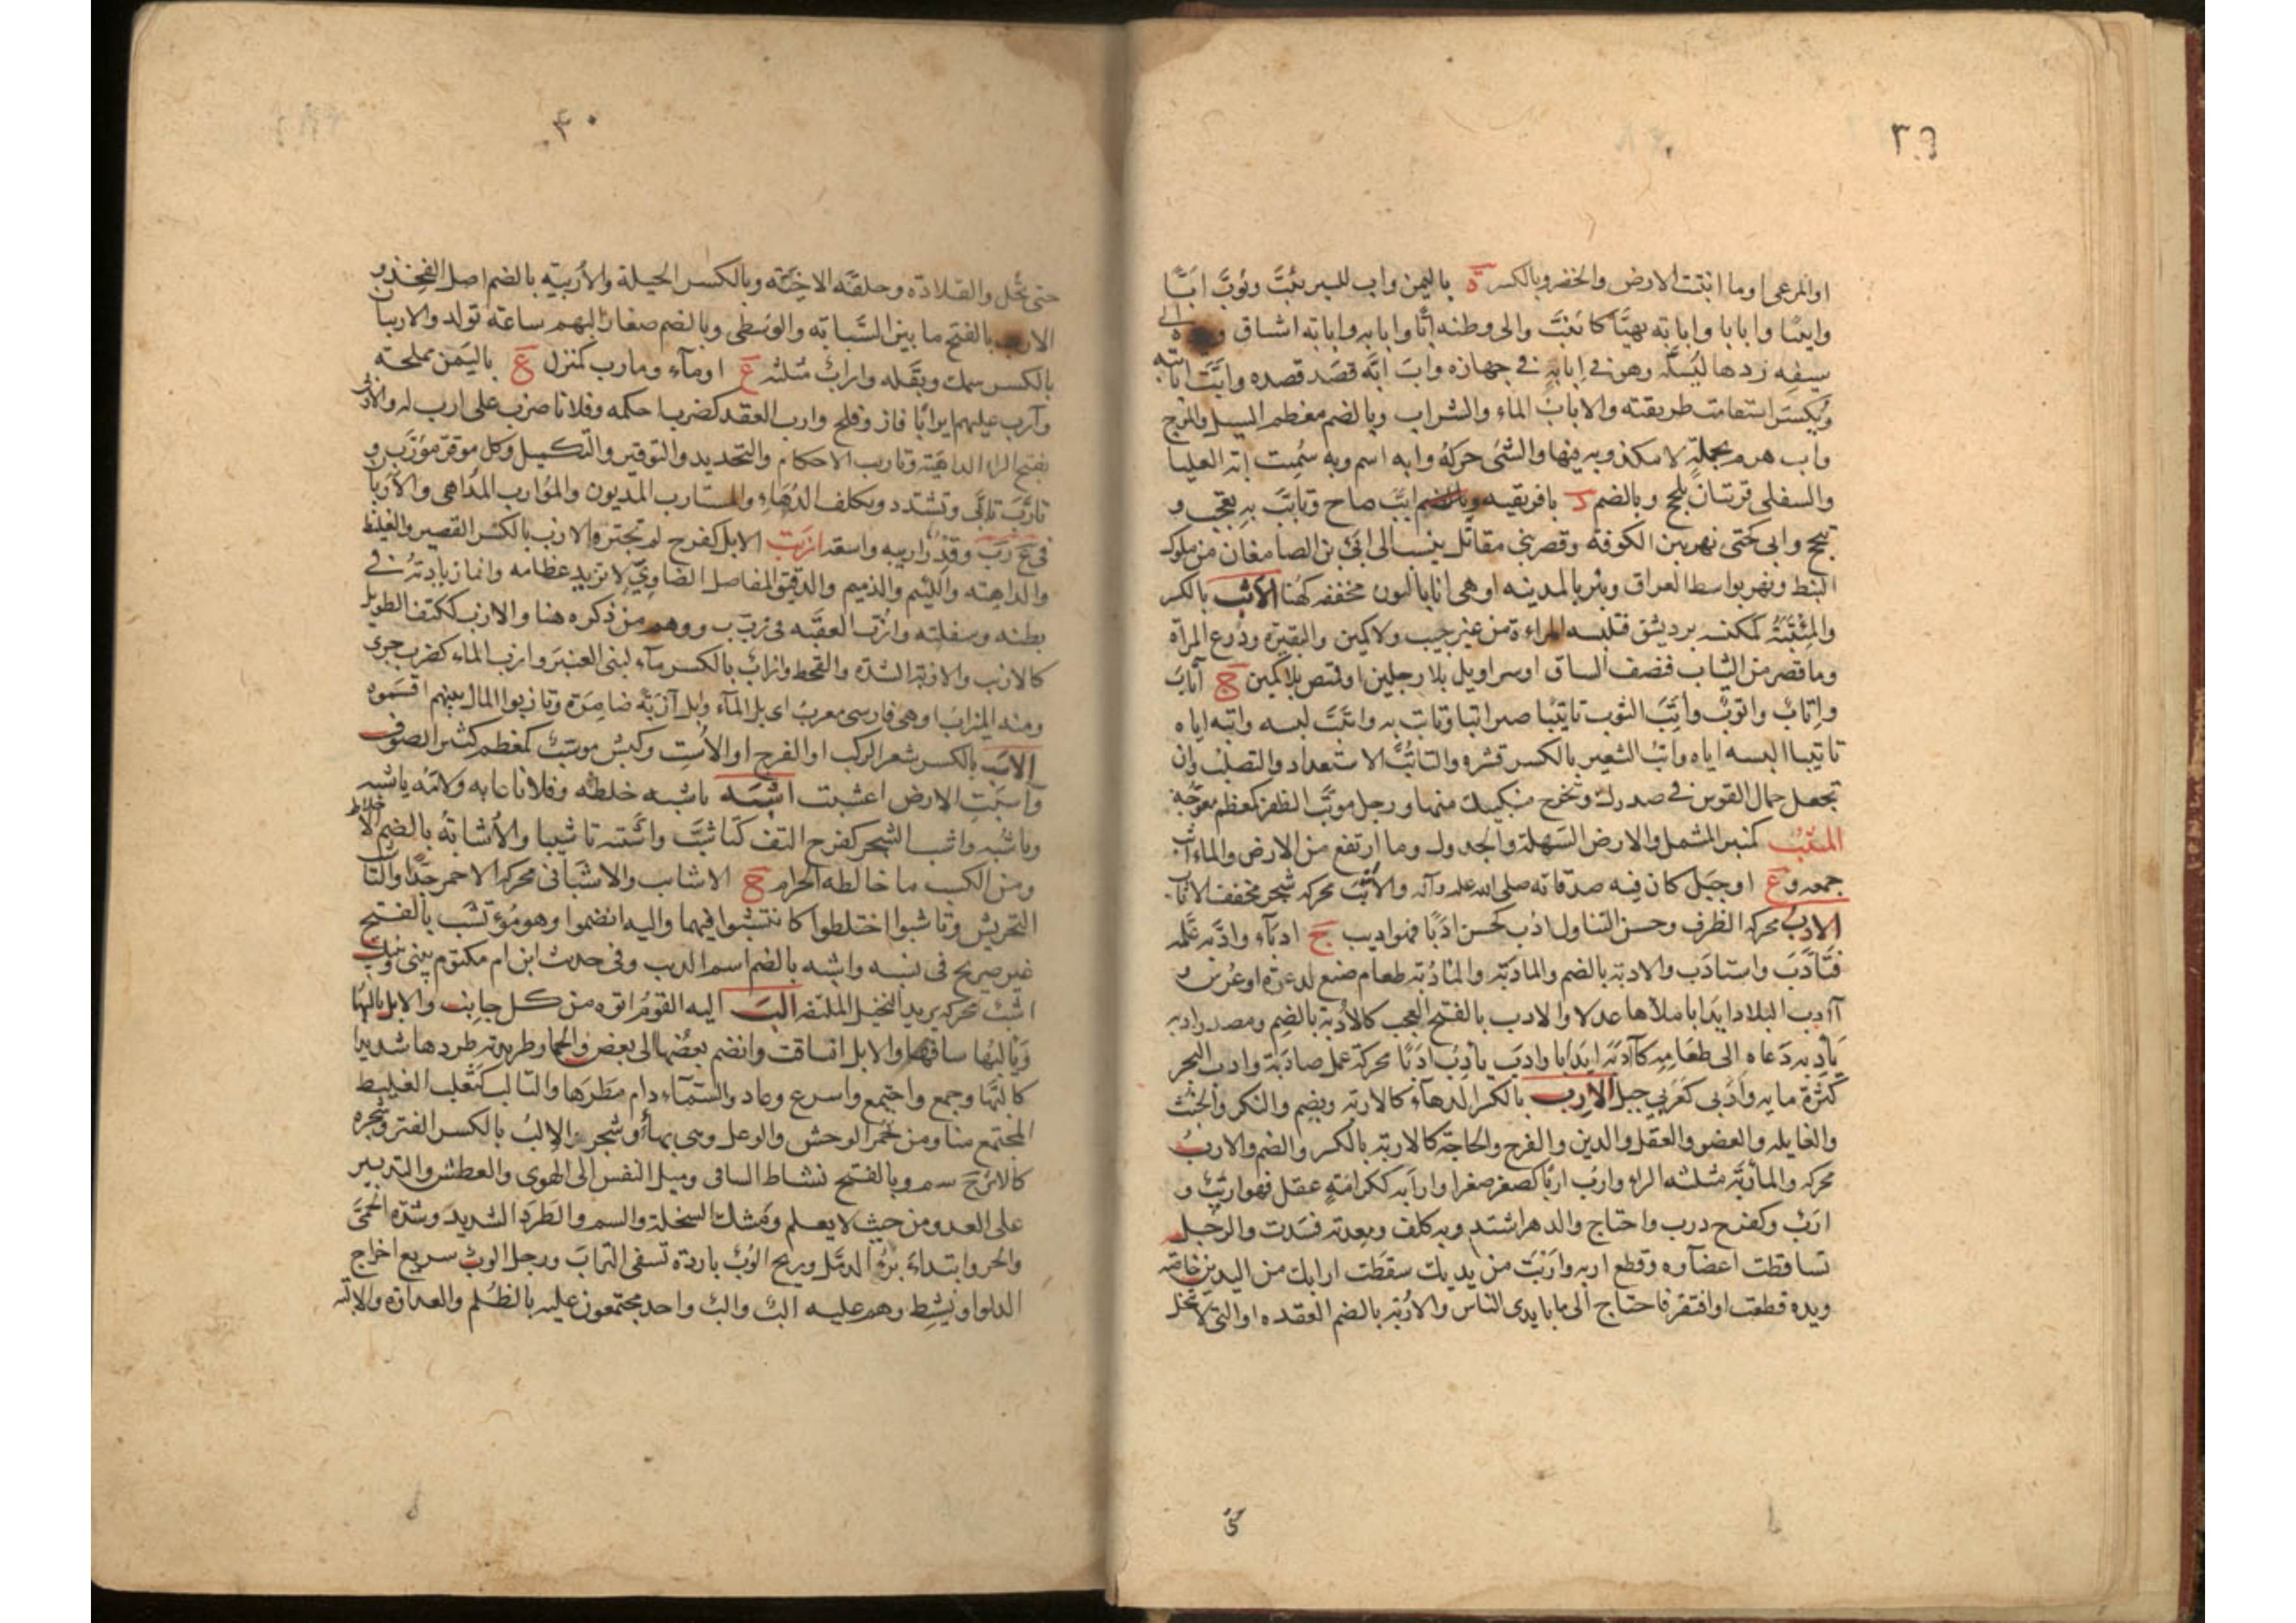 ٣٩
او المرعى او ما انبتت الارض والخضر وبالكسر ة باليمن واب للسير يئبّ ويؤبّ ابّا
وابيبا وابابا وابابة تهيّا كائتبّ والى وطنه ابّا وابابة وابابة اشتاق و الى
سيفه رد يده ليستله وهو فى ابابه فى جهازه وابّ ابّه قصد قصده وابّت ابابته
ويكسر استقامت طريقته والاباب الماء والشراب وبالضم معظم السيل والموج
واب هزم بحملة لا مكذوبه فيها والشئ حركه وابه اسم وبه سميت ابّة العليا
والسفلى قريتان بلحج وبالضم د بافريقية وبالضم ابّب صاح وتابّب به تعجب و
تبجح وابى كحتى نهر بين الكوفة وقصر بنى مقاتل ينسب الى ابى بن الصامغان من ملوك
النبط ونهر بواسط العراق وبئر بالمدينه او هى انا بالنون مخففه كهنا الاتب بالكسر
والمئتبة كمكنسه برد يشق فتلبسه المراءة من غير جيب ولا كمين والبقيرة ودرع المرأة
وما قصر من الثياب فنصف الساق او سراويل بلا رجلين او قميص بلا كمين ج آتاب
واتاب واتوب وأتّب الثوب تاتيبا صير اتبا وتاتب به وائتبّ لبسه واتبه اياه
تاتيبا البسه اياه واتب الشعير بالكسر قشره والتاتب الاستعداد والتصلب وان
تجعل حمال القوس فى صدرك وتخرج منكبيك منها ورجل موتّب الظفر كعظم معوجّه
المئثب كمنبر المشمل والارض السهلة والجدول وما ارتفع من الارض والمآثب
جمعه وع او جبل كان فيه صدقاته صلى الله عليه وآله والأثب محركه شجر مخفف الاثأب
الادب محركه الظرف وحسن التناول ادب كحسن ادبا فهو اديب ج ادباء وادّبه علّمه
فتأدّب واستادب والادبة بالضم والمادبة والمأدبة طعام صنع لدعوة او عرس و
آدب البلاد ايدابا ملأها عدلا والادب بالفتح العجب كالأدبة بالضم ومصدر ادبه
يأدبه دعاه الى طعامه كآدبه ايدابا وادب يأدب ادبا محركة عمل مادبة وادب البحر
كثرة مايه وأدبى كعربى جبل الارب بالكسر الدهاء كالاربه ويضم والنكر والخبث
والغايله والعضو والعقل والدين والفرج والحاجة كالاربة بالكسر والضم والارب
محركه والمأربة مثلثه الراء وارب اربا كصغر صغرا وارابه ككرامة عقل فهو اريب و
ارب وكفرح درب واحتاج والدهر اشتد وبه كلف ومعدته فسدت والرجل
تساقطت اعضآوه وقطع اربه وأربت من يديك سقطت ارابك من اليدين خاصة
ويده قطعت او افتقر فاحتاج الى ما بايدى الناس والأربة بالضم العقده او التى لا تنحل
حتى
٤٠
حتى تحل والقلادة وحلقه الاخيّه وبالكسر الحيلة والأربيه بالضم اصل الفخذ و
بالفتح ما بين السّبابه والوسطى وبالضم صغار البهم ساعة تولد والاربيان
بالكسر سمك وبقله واراب مثلثه ع او مآء ومارب كمنزل ع باليمن مملحة
وآرب عليهم ايرابا فاز وفلح وارب العقد كضرب احكمه وفلانا ضرب على ارب له والأربى
بفتح الراء الداهية وتاريب الاحكام والتحديد والتوفير والتكميل وكل موفر مؤرّب و
تأرّب تأبّى وتشدد وتكلف الدهاء والمستارب المديون والموارب المداهى والأربان
فى ع ر ب وقدر اريبه واسعة ازبت الابل كفرح لم تجتر والازب بالكسر القصير والغليظ
والداهيه واللئيم والذميم والدقيق المفاصل الضاوى لا تزيد عظامه وانما زيادته فى
بطنه وسفلته وازب العقبه فى ز ب ب ووهم من ذكره هنا والازب ككتف الطويل
كالازيب والازبة الشدة والقحط وازاب بالكسر مآء لبنى العنبر وازب الماء كضرب جرى
ومنه الميزاب او هى فارسى معرب اى بل المآء وابل آزبة ضامزة وتازبوا المال بينهم اقتسموه
الاسب بالكسر شعر الركب او الفرج او الأست وكبش موسّب كمعظم كثير الصوف
وآسبت الارض اعشبت اشبه ياشبه خلطه وفلانا عابه ولامه ياشبه
وياشبه واشب الشجر كفرح التف كتاشّب واشّبته تاشيبا والأشابة بالضم الاخلاط
ومن الكسب ما خالطه الحرام ج الاشايب والاشبانى محركه الاحمر جدا والتاشيب
التحريش وتاشبوا اختلطوا كائتشبوا فيهما واليه انضموا وهو مؤتشب بالفتح
غير صريح فى نسبه واشبه بالضم اسم الذيب وفى حديث ابن ام مكتوم بينى وبينك
اشب محركه يريد النخيل الملتفه الب اليه القوم اتوه من كل جانب والابل يالبها
ويألبها ساقها والابل انساقت وانضم بعضها الى بعض والحمار طريدته طردها شديدا
كالّبها وجمع واجتمع واسرع وعاد والسّمآء دام مطرها والتالب كثعلب الغليظ
المجتمع منا ومن حمر الوحش والوعل وهى بهاء وشجر والإلب بالكسر الفتر وشجره
كالاترج سم وبالفتح نشاط الساقى وميل النفس الى الهوى والعطش والتدبير
على العدو من حيث لا يعلم ومسك السخلة والسم والطرد الشديد وشدة الحمى
والحر وابتداء برء الدمّل وريح الوب باردة تسفى التراب ورجل الوب سريع اخراج
الدلو او نشيط وهم عليه الب والب واحد مجتمعون عليه بالظلم والعداوة والالبه